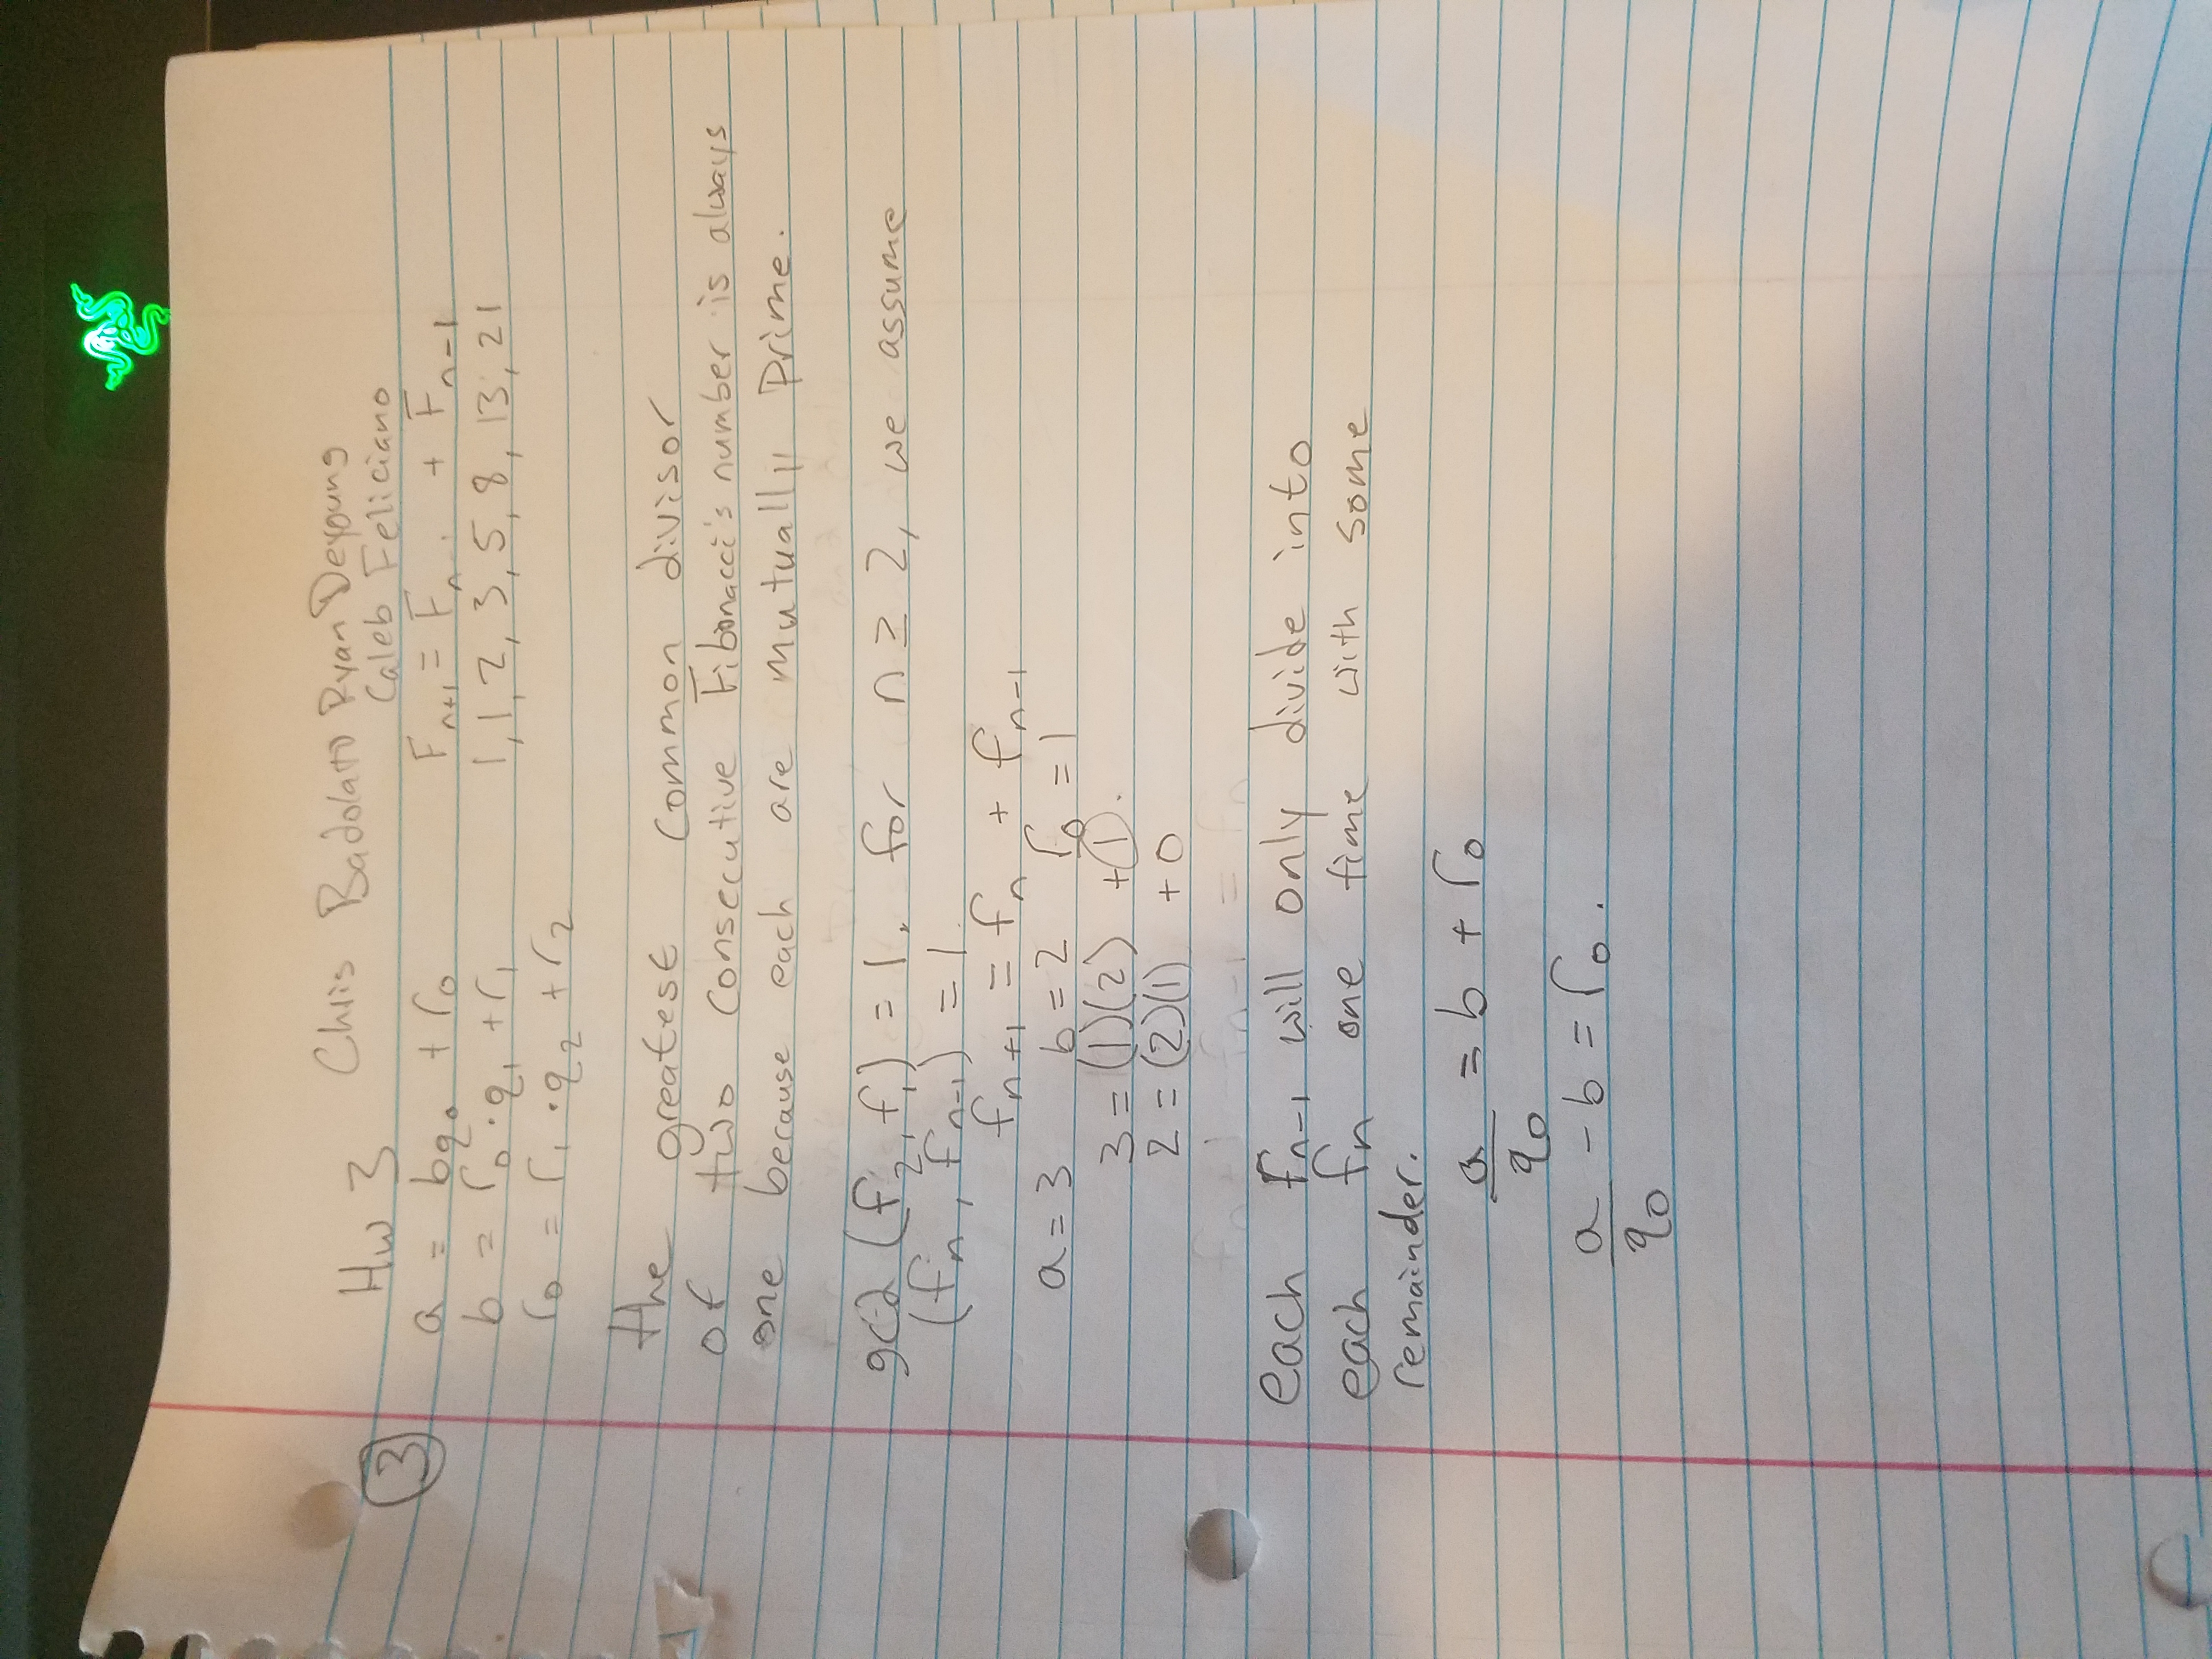 Hw 3 Chris Badolato Ryan Deyoung
Caleb Feliciano
3
a = bq₀ + r₀
b = r₀ · q₁ + r₁
r₀ = r₁ · q₂ + r₂
Fₙ₊₁ = Fₙ + Fₙ₋₁
1, 1, 2, 3, 5, 8, 13, 21
the greatest common divisor
of two consecutive Fibonacci's number is always
one because each are mutually prime.
gcd (f₂, f₁) = 1. for n ≥ 2, we assume
(fₙ, fₙ₋₁) = 1.
fₙ₊₁ = fₙ + fₙ₋₁
a = 3 b = 2 r₀ = 1
3 = (1)(2) + 1.
2 = (2)(1) + 0
each fₙ₋₁ will only divide into
each fₙ one time with some
remainder.
a/q₀ = b + r₀
a/q₀ - b = r₀.